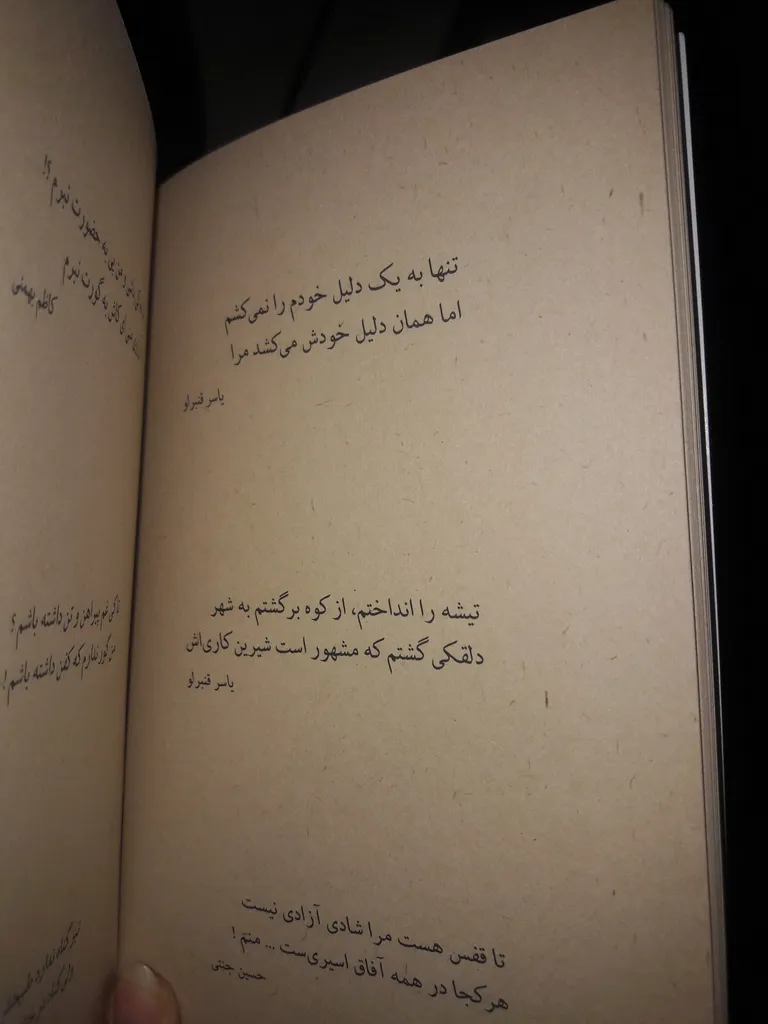 تنها به یک دلیل خودم را نمی‌کشم
اما همان دلیل خودش می‌کشد مرا
یاسر قنبرلو
تیشه را انداختم، از کوه برگشتم به شهر
دلقکی گشتم که مشهور است شیرین کاری‌اش
یاسر قنبرلو
تا قفس هست مرا شادی آزادی نیست
هر کجا در همه آفاق اسیری‌ست ... منم !
حسین جنتی
به حضورت نبرم ؟!
ای کاش به گورت نبرم
کاظم بهمنی
تا کی غم پیراهن و تن داشته باشم ؟
من گور ندارم که کفن داشته باشم !